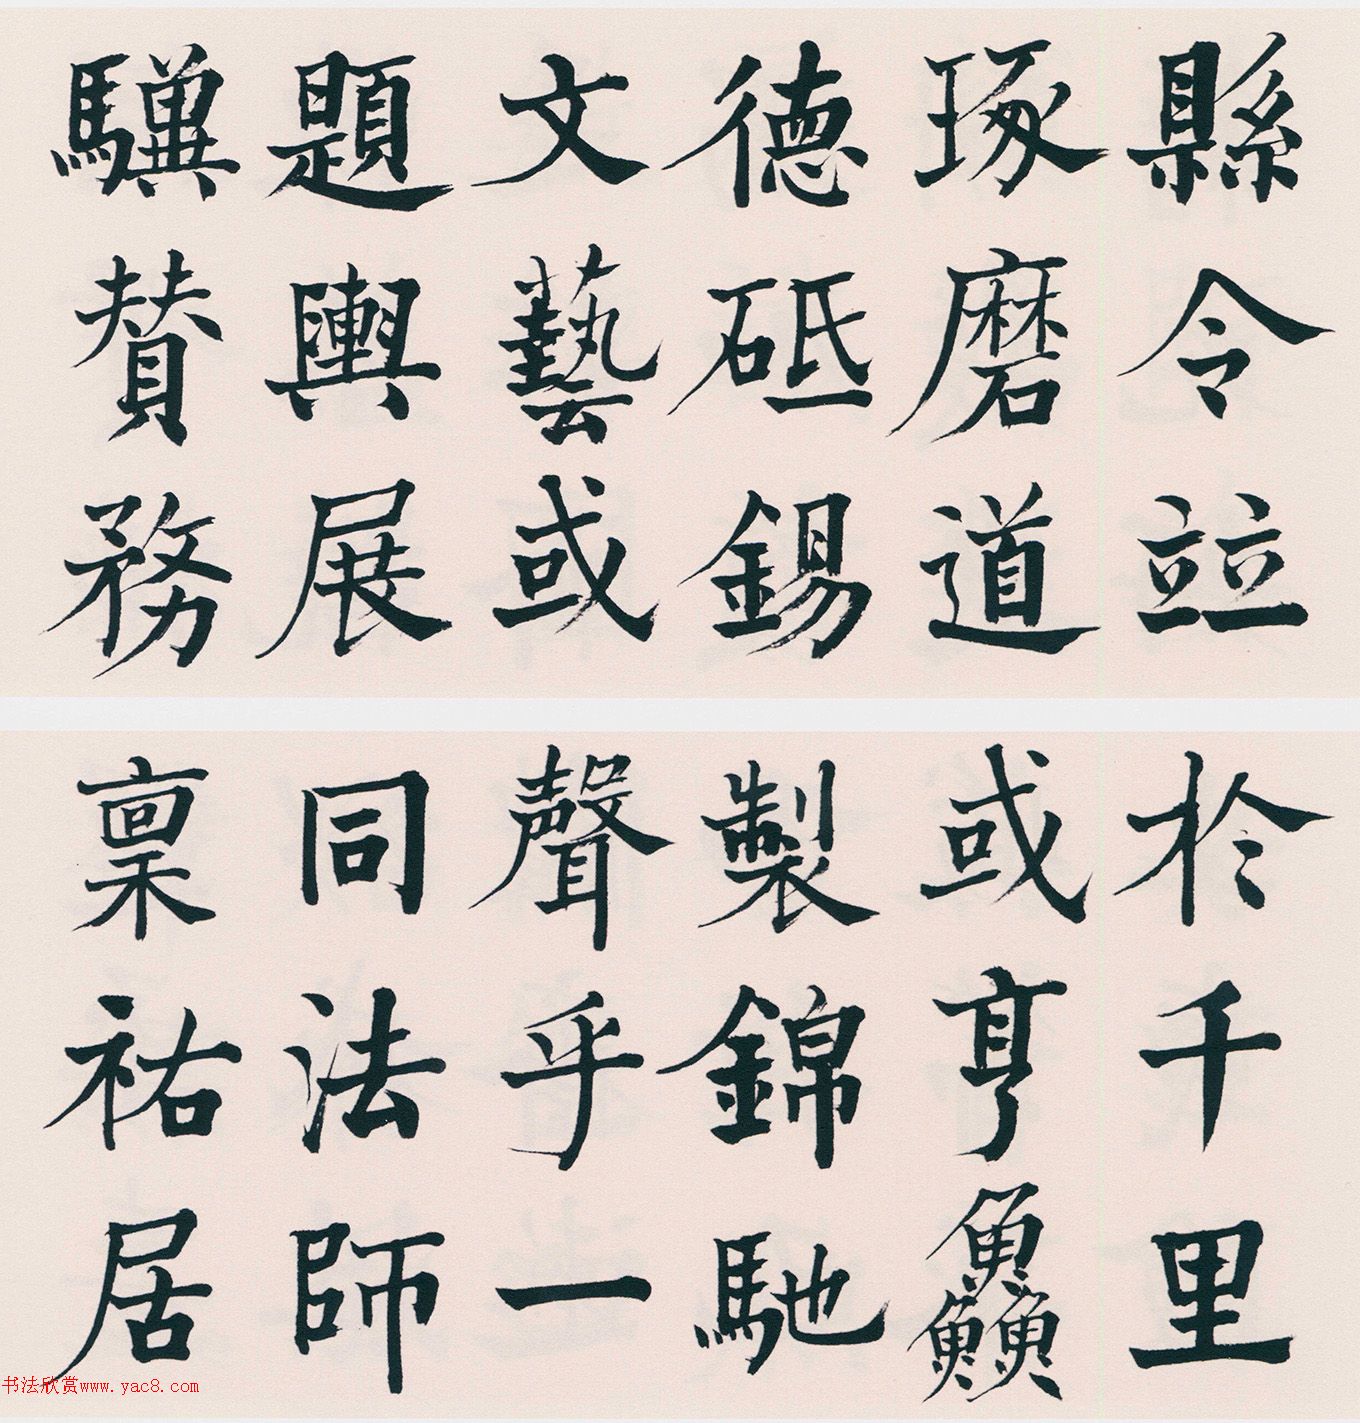 縣令竝
琢磨道
德砥錫
文藝或
題輿展
驥賛務
於千里
或亨鱻
製錦馳
聲乎一
同法師
稟祐居
书法欣赏www.yac8.com